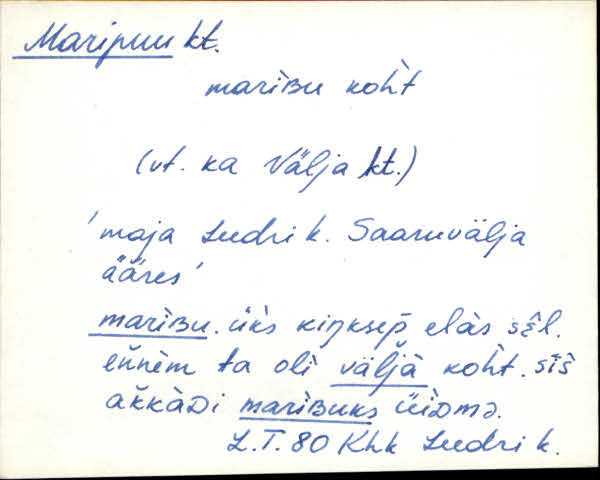 Maripuu kt.
marìʙu koh̀t
(vt. ka Välja kt.)
'maja Leedri k. Saaruvälja
ääres'
marìʙu. ük̀s kiŋksep̄ elàs sɛ̂l.
en̆nèm ta olì väljà koh̀t. sîs
ak̆kàᴅi marìʙuks üìᴅmə.
L.T. 80 Khk Leedri k.